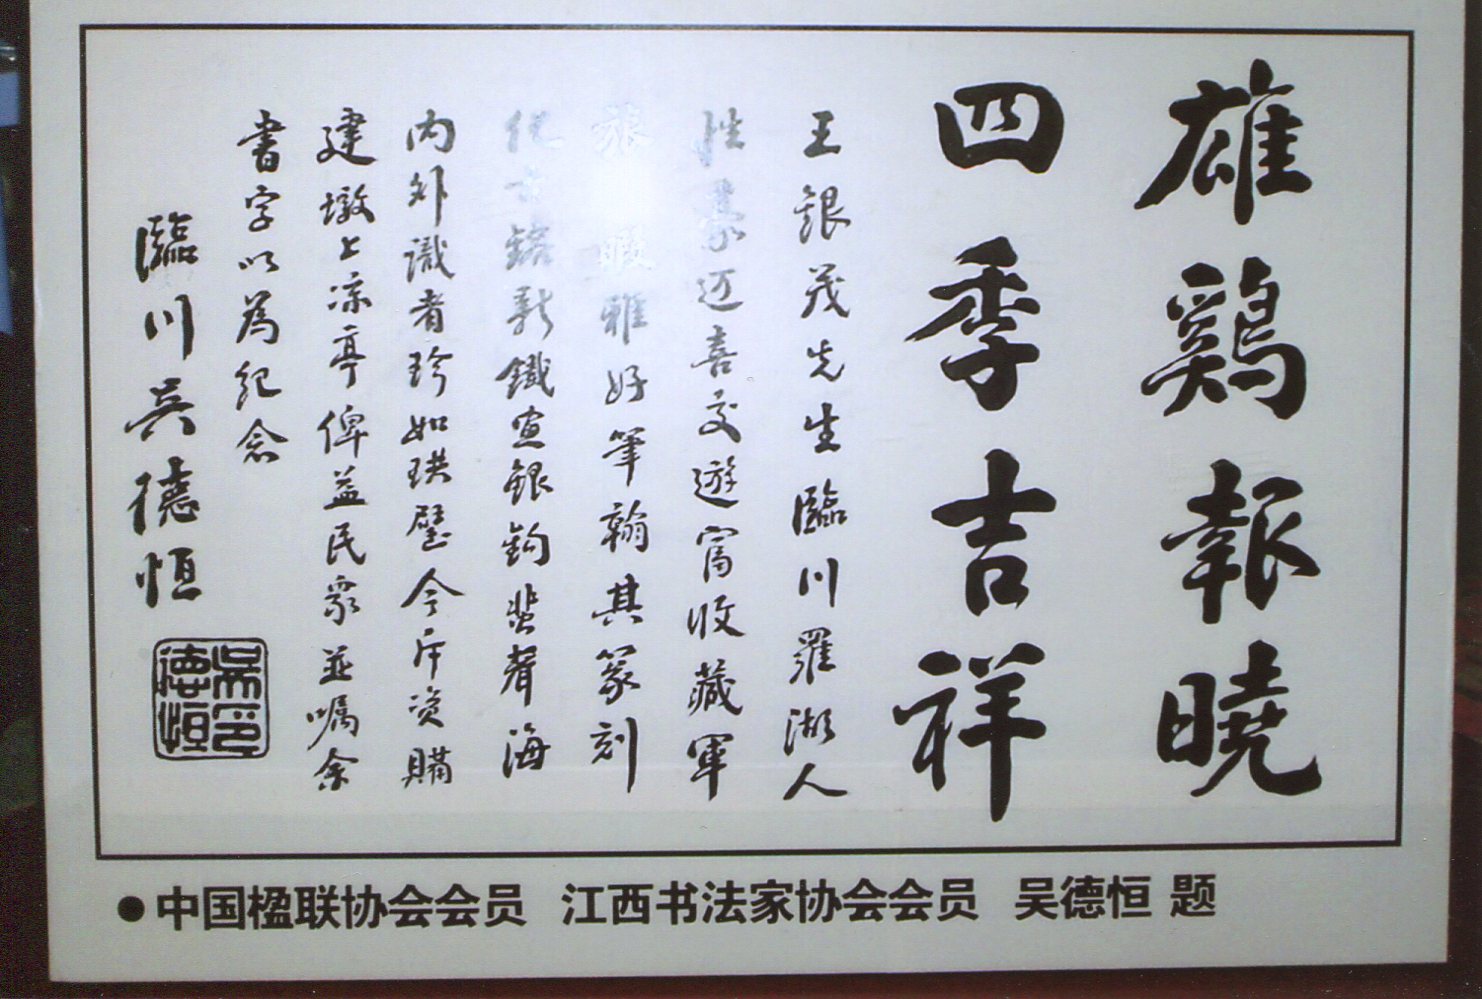 雄鷄報曉
四季吉祥
王銀茂先生臨川羅湖人
性豪迈喜交遊富收藏軍
旅 暇雅好筆翰其篆刻
化古鎔新鐵畫銀鈎蜚聲海
内外識者珍如珙璧今斥资購
建墩上凉亭俾益民衆並嘱余
書字以為紀念
臨川吴德恒
吴德恒印
●中国楹联协会会员 江西书法家协会会员 吴德恒 题